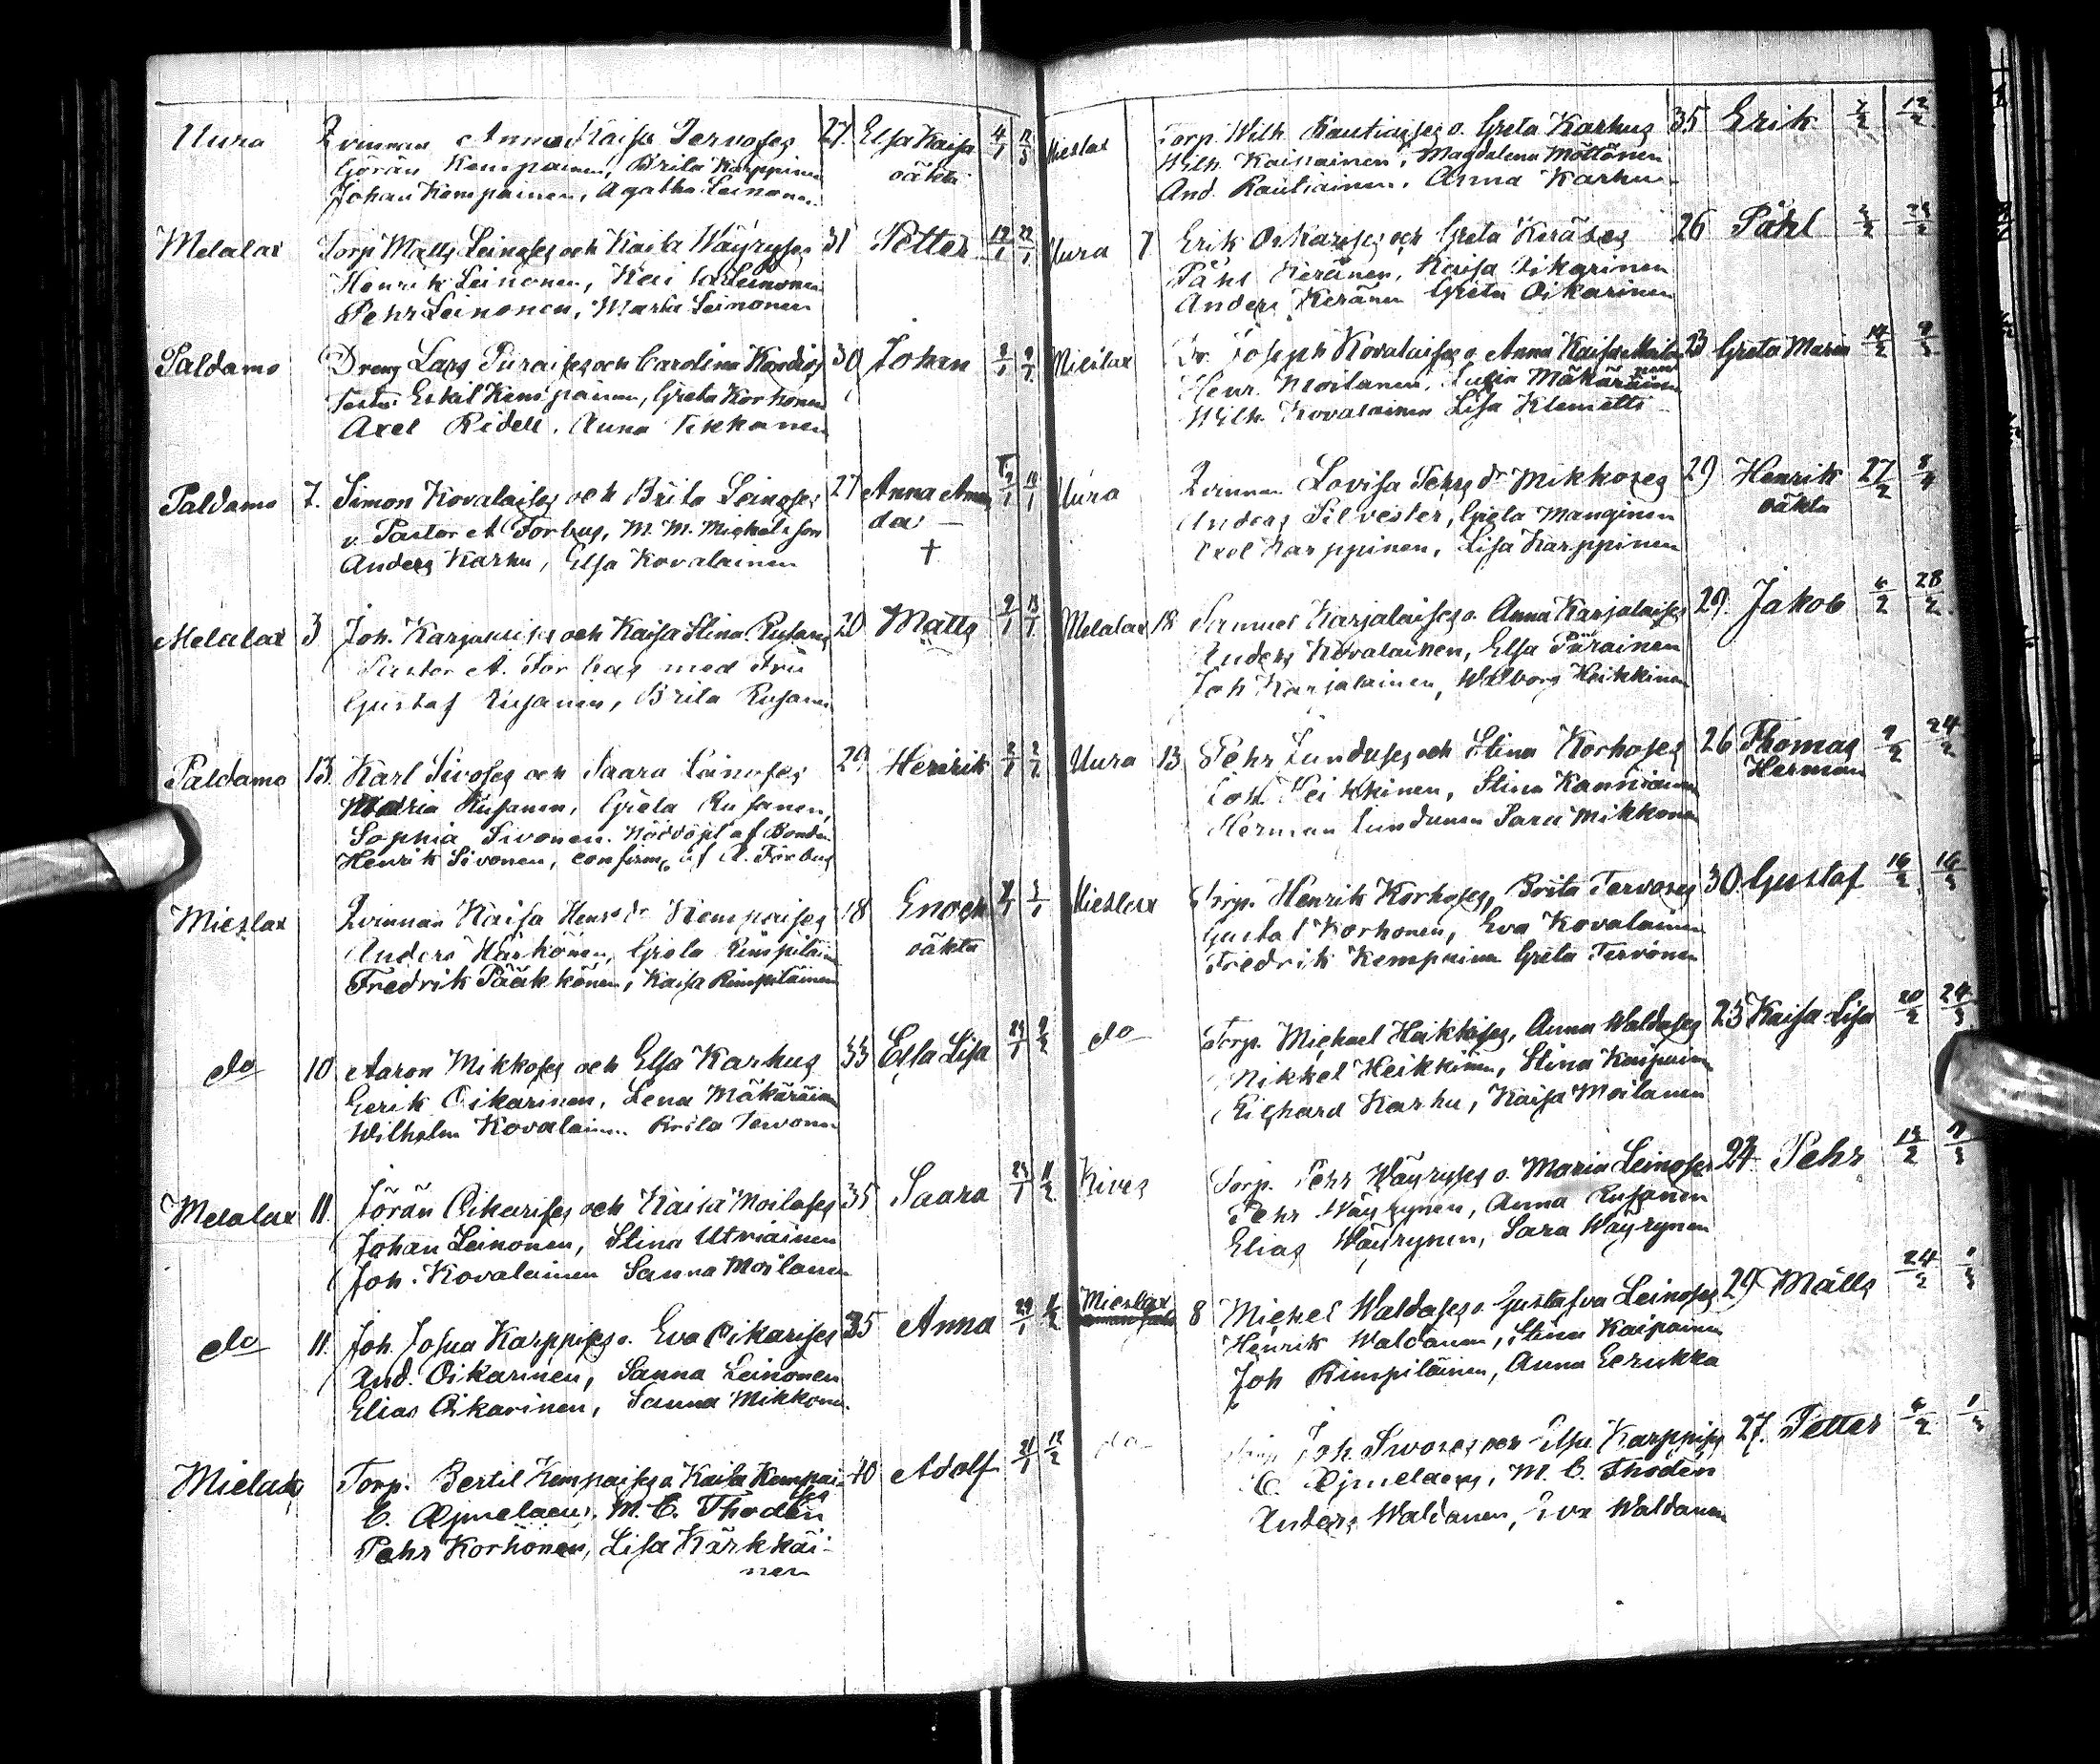 Uura Qvinnan Anna Kaisa Tervoses 27. Elsa Kaisa 4/1 12/3
Görän Kempainen, Brita Karppinen oäkta
Johan Kempainen, Agatha Leinonen
Melalax Torp. Matts Leinoses och Kaisa Wäyryses 31 Petter 19/1 22/1
Henrik Leinonen, Kaisa Leinonen
Pehr Leinonen, Maria Leinonen
Paldamo Dreng Lars Piiraises och Carolina 30 Johan
Test: Eskil Kempainen, Greta Korhonen
Axel Ridell. Anna Tikkanen
Paldamo 7. Simon Kovalaises och Brita Leinoses 27 Anna Aman
v. Pastor A Forbus, M. M. Michelsson da —
Anders Karhu, Elsa Kovalainen †
Melalax 3 Joh. Karjalaises och Kaisa Stina Rusanes 20 Matts 9/1 13/1
Pastor A. Forbus med Fru
Gustaf Rusanen, Brita Rusanen
Paldamo 13. Karl Sivoses och Saara Leinoses 29 Henrik
Maria Rusanen, Greta Rusanen,
Sophia Sivonen. Nöddöpt af Bonden
Henrik Sivonen, confirm. af A. Forbus
Mieslax Qvinnan Kaisa Henr. dr Kempaises 18 Enoch
Anders Härkönen, Greta Rimpiläinen oäkta
Fredrik Pääkkönen, Kaisa Rimpiläinen
do 10 Aaron Mikkoses och Elsa Karhus 33 Elsa Lisa
Eerik Oikarinen, Lena Mäkäräinen
Wilhelm Kovalainen Brita Tervonen
Melalax 11. Jörän Oikarises och Kaisa Moilases 35 Saara
Johan Leinonen, Stina Utriainen
Joh. Kovalainen Sanna Moilanen
do 11. Joh. Josua Karppises o. Eva Oikarises 35 Anna
And. Oikarinen, Sanna Leinonen
Elias Oikarinen, Sanna Mikkonen.
Mielax Torp. Bertil Kempaises o Kaisa Kempai- 40 Adolf 12/2
ses
C. Æjmelaeus, M. C. Thodén
Pehr Korhonen, Lisa Kärkkäi-
nen
Mieslax Torp. Wilh. Rautiaises o. Greta Karhus 35 Erik 12/2
Wilh. Kainainen, Magdalena Möttönen
And. Rautiainen, Anna Karhu
Uura 7 Erik Oikarises och Greta Keräses 26 Påhl
Påhl Keränen, Kaisa Oikarinen
Anders Keränen Greta Oikarinen
Mieslax Joseph Kovalaises o. Anna Kaisa Moila 23 Greta Maria
Henr. Moilanen, Lusia Mäkäräinen
Wilh. Kovalainen Lisa Klemetti
Uura Qvinnan Lovisa Pehrs dr Mikkoses 29 Henrik 27/2
Anders Silvester, Greta Manninen oäkta
Axel Karppinen, Lisa Karppinen
Melalax 18 Samuel Karjalaises o. Anna Karjalaises 29. Jakob 6/2 28/2
Anders Kovalainen, Elsa Piirainen
Joh Karjalainen, Walborg Heikkinen
Uura 13 Pehr Lunduses och Stina Korhoses 26 Thomas 24/2
Joh. Heikkinen, Stina Kanniainen Herman
Herman Lundunen Sara Mikkonen
Mieslax Torp. Henrik Korhoses, Brita Tervoses 30. Gustaf 16/2 16/3
Gustaf Korhonen, Eva Kovalainen
Fredrik Kempainen Greta Tervonen
do Torp. Michael Heikkises, Anna Waldases 23 Kaisa Lisa 20/2 24/3
Mikkel Heikkinen, Stina Kaipainen
Richard Karhu, Kaisa Moilanen
Kives Torp. Pehr Wäyryses o. Maria Leinoses 24. Pehr
Pehr Wäyrynen, Anna Rusanen
Elias Wäyrynen, Sara Wäyrynen
Mieslax 8 Michel Waldases o. Gustafva Leinoses 29 Matts 24/2
Henrik Waldanen, Stina Kaipainen
Joh Rimpiläinen, Anna Eerukka
do Joh. Sivoses och Elsa Karppises 27. Petter
C. Æjmelaeus, M. C. Thodén
Anders Waldanen, Eva Waldanen